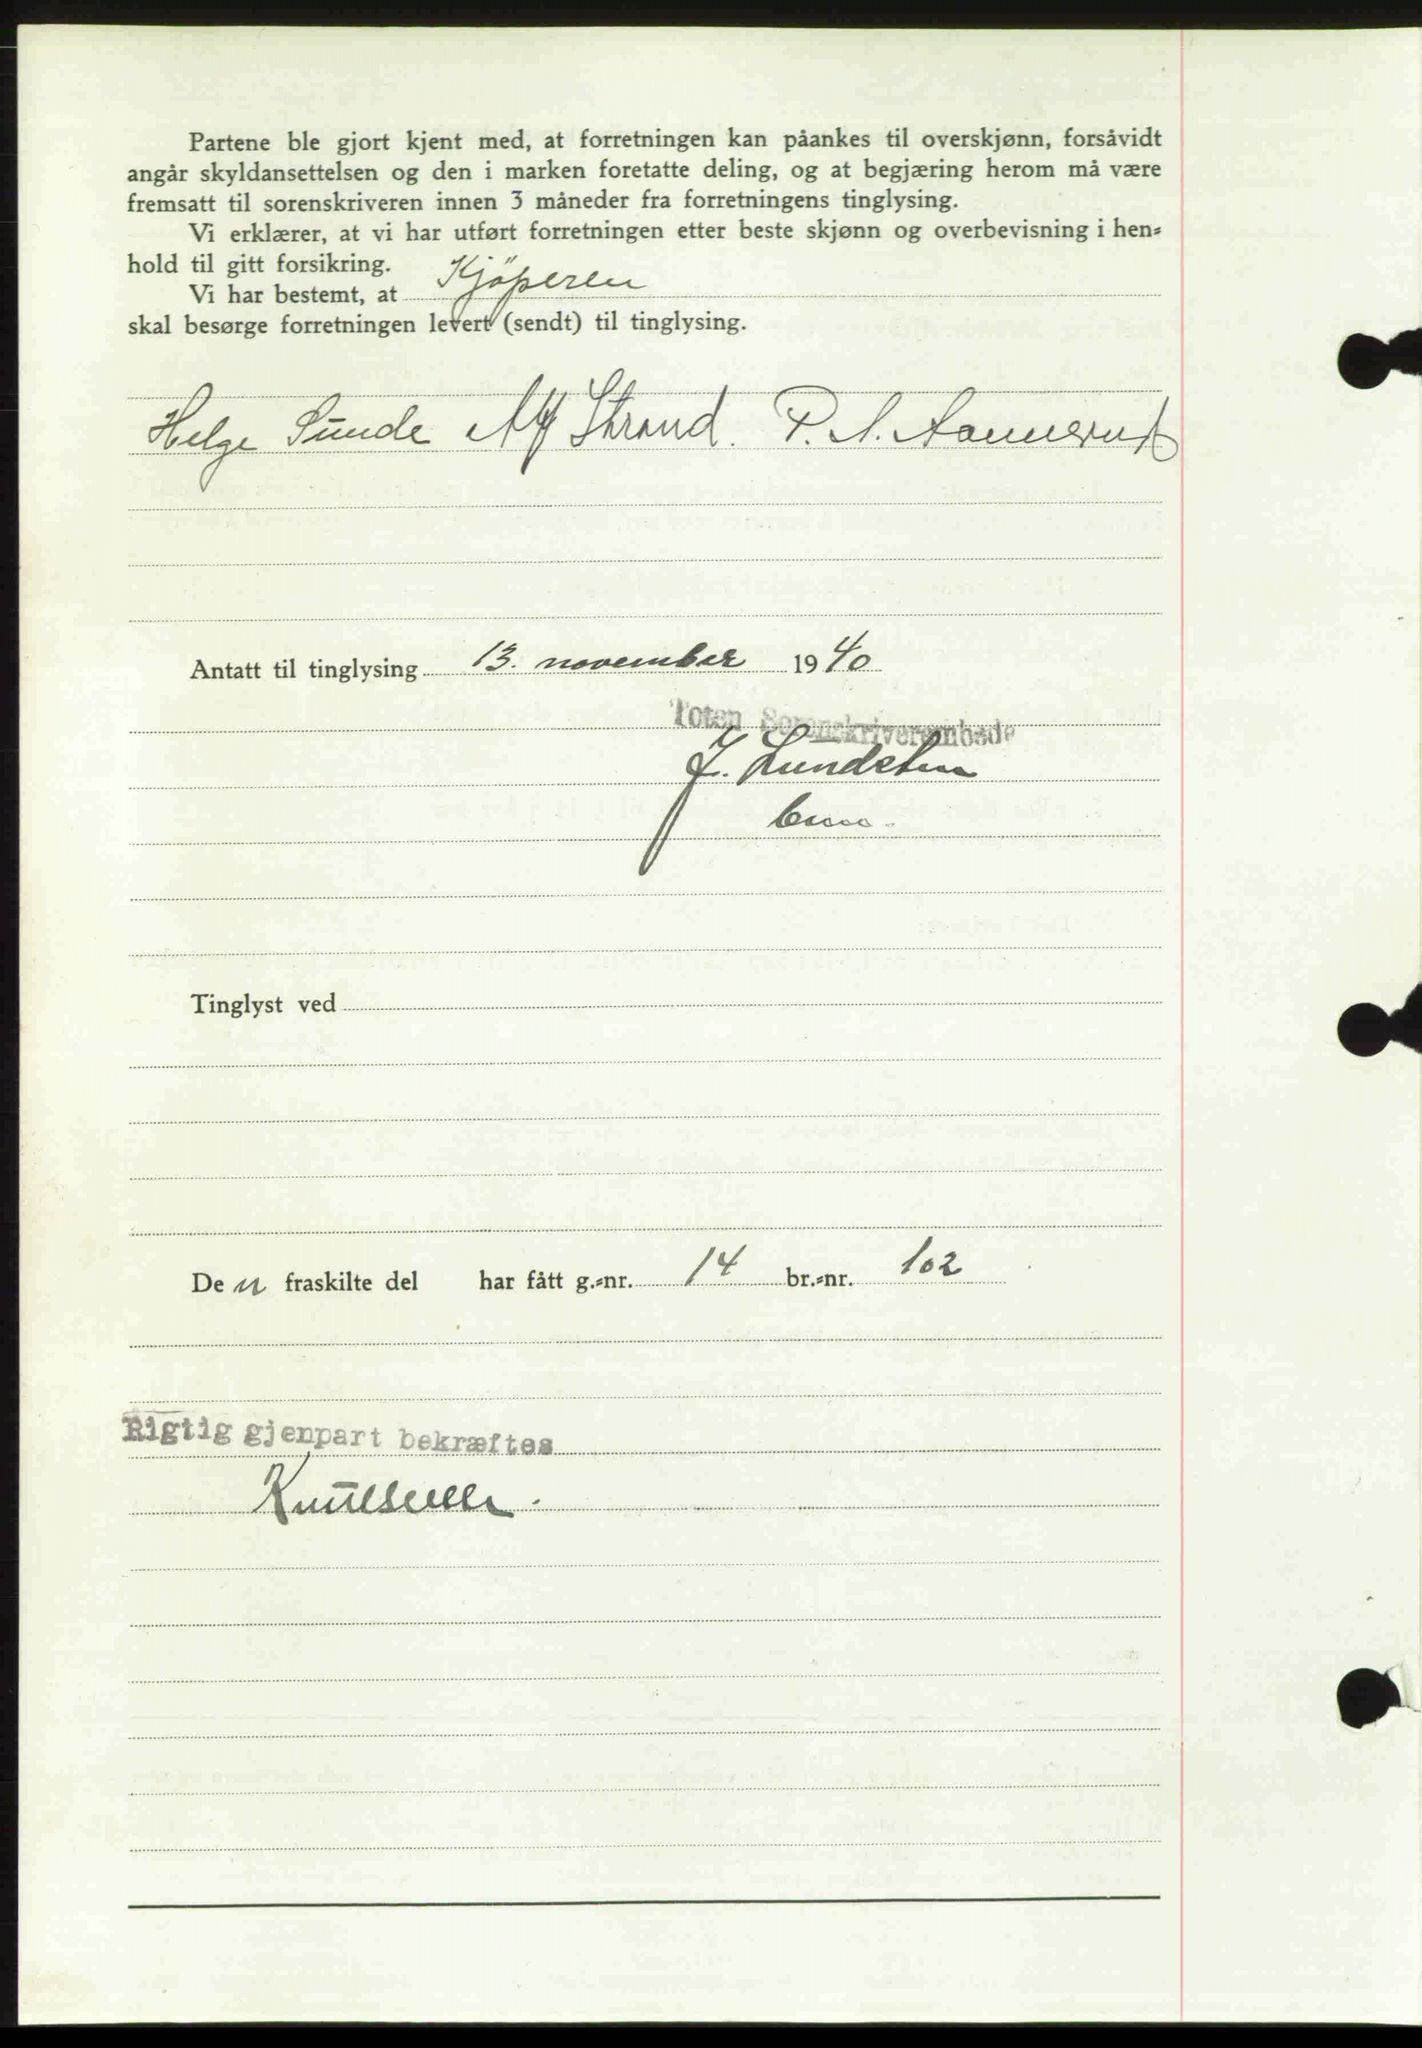 Partene ble gjort kjent med, at forretningen kan påankes til overskjønn, forsåvidt
angår skyldansettelsen og den i marken foretatte deling, og at begjæring herom må være
fremsatt til sorenskriveren innen 3 måneder fra forretningens tinglysing.
Vi erklærer, at vi har utført forretningen etter beste skjønn og overbevisning i hen-
hold til gitt forsikring.
Vi har bestemt, at Kjöperen
skal besørge forretningen levert (sendt) til tinglysing.
Helge Sunde Alf Strand. P. A.
Antatt til tinglysing 13. november 1940
Toten Sorenskriverembede
J. Lundsten
Tinglyst ved
De n fraskilte del har fått g.-nr. 14 br.-nr. 102
Rigtig gjenpart bekræftes